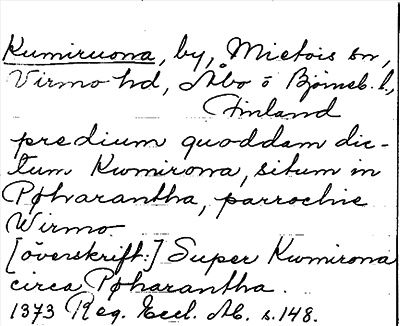 Kumiruona, by, Mietois sn,
Virmo hd, Åbo o Björneb. l.,
Finland
predium quoddam dic-
tum Kumirona, situm in
Pøharantha, parrochie
Wirmo
[överskrift:] Super Kumirona
circa Pøharantha.
1373 Reg. Eccl. Ab. s. 148.